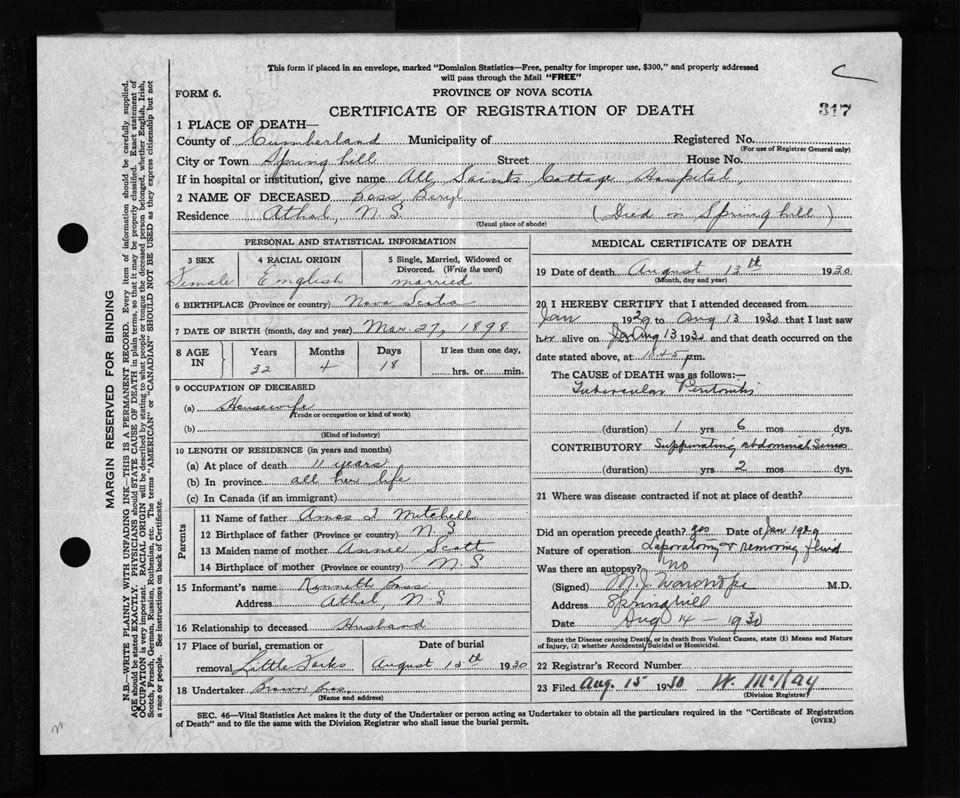 This form if placed in an envelope, marked "Dominion Statistics—Free, penalty for improper use, $300," and properly addressed
will pass through the Mail "FREE"
FORM 6.
PROVINCE OF NOVA SCOTIA
CERTIFICATE OF REGISTRATION OF DEATH
317
1 PLACE OF DEATH—
County of Cumberland Municipality of Registered No.
(For use of Registrar General only)
City or Town Springhill Street House No.
If in hospital or institution, give name All Saints Cottage Hospital,
2 NAME OF DECEASED Beryl
Residence Athol, N.S. (Died in Springhill)
(Usual place of abode)
PERSONAL AND STATISTICAL INFORMATION
3 SEX Female
4 RACIAL ORIGIN English
5 Single, Married, Widowed or Divorced. (Write the word) married
6 BIRTHPLACE (Province or country) Nova Scotia
7 DATE OF BIRTH (month, day and year) Mar 27, 1898
8 AGE IN Years 32 Months 4 Days 18 If less than one day, hrs. or min.
9 OCCUPATION OF DECEASED
(a) Housewife
(Trade or occupation or kind of work)
(b)
(Kind of industry)
10 LENGTH OF RESIDENCE (in years and months)
(a) At place of death 11 years
(b) In province all her life
(c) In Canada (if an immigrant)
Parents
11 Name of father Amos T Mitchell
12 Birthplace of father (Province or country) N S
13 Maiden name of mother Annie Scott
14 Birthplace of mother (Province or country) N.S
15 Informant's name Kenneth
Address Athol, N.S
16 Relationship to deceased Husband
17 Place of burial, cremation or removal Little Forks
Date of burial August 15th 1930
18 Undertaker Brown
(Name and address)
MEDICAL CERTIFICATE OF DEATH
19 Date of death August 13th 1930
(Month, day and year)
20 I HEREBY CERTIFY that I attended deceased from
Jan 1929 to Aug 13 1930 that I last saw
her alive on Aug 13 1930 and that death occurred on the
date stated above, at 10.45 pm.
The CAUSE of DEATH was as follows:—
Tubercular Peritonitis
(duration) 1 yrs 6 mos dys.
CONTRIBUTORY Suppurating abdominal Sinus
(duration) yrs 2 mos dys.
21 Where was disease contracted if not at place of death?
Did an operation precede death? yes Date of Jan 1929
Nature of operation Laporatomy & removing fluid
Was there an autopsy? No
(Signed) M. J. Wardrope M.D.
Address Springhill
Date Aug 14 - 1930
State the Disease causing Death, or in death from Violent Causes, state (1) Means and Nature
of Injury, (2) whether Accidental, Suicidal or Homicidal.
22 Registrar's Record Number
23 Filed Aug. 15 1930 W. McKay
(Division Registrar)
SEC. 46—Vital Statistics Act makes it the duty of the Undertaker or person acting as Undertaker to obtain all the particulars required in the "Certificate of Registration
of Death" and to file the same with the Division Registrar who shall issue the burial permit.
(OVER)
MARGIN RESERVED FOR BINDING
N.B.—WRITE PLAINLY WITH UNFADING INK—THIS IS A PERMANENT RECORD. Every item of information should be carefully supplied.
AGE should be stated EXACTLY. PHYSICIANS should STATE CAUSE OF DEATH in plain terms, so that it may be properly classified. Exact statement of
OCCUPATION is very important. RACIAL ORIGIN will be described by stating to what people or tongue the deceased person belonged, whether English, Irish,
Scotch, French, German, Russian, Ruthenian, etc. The terms "AMERICAN" or "CANADIAN" SHOULD NOT BE USED as they express citizenship but not
a race or people. See instructions on back of Certificate.